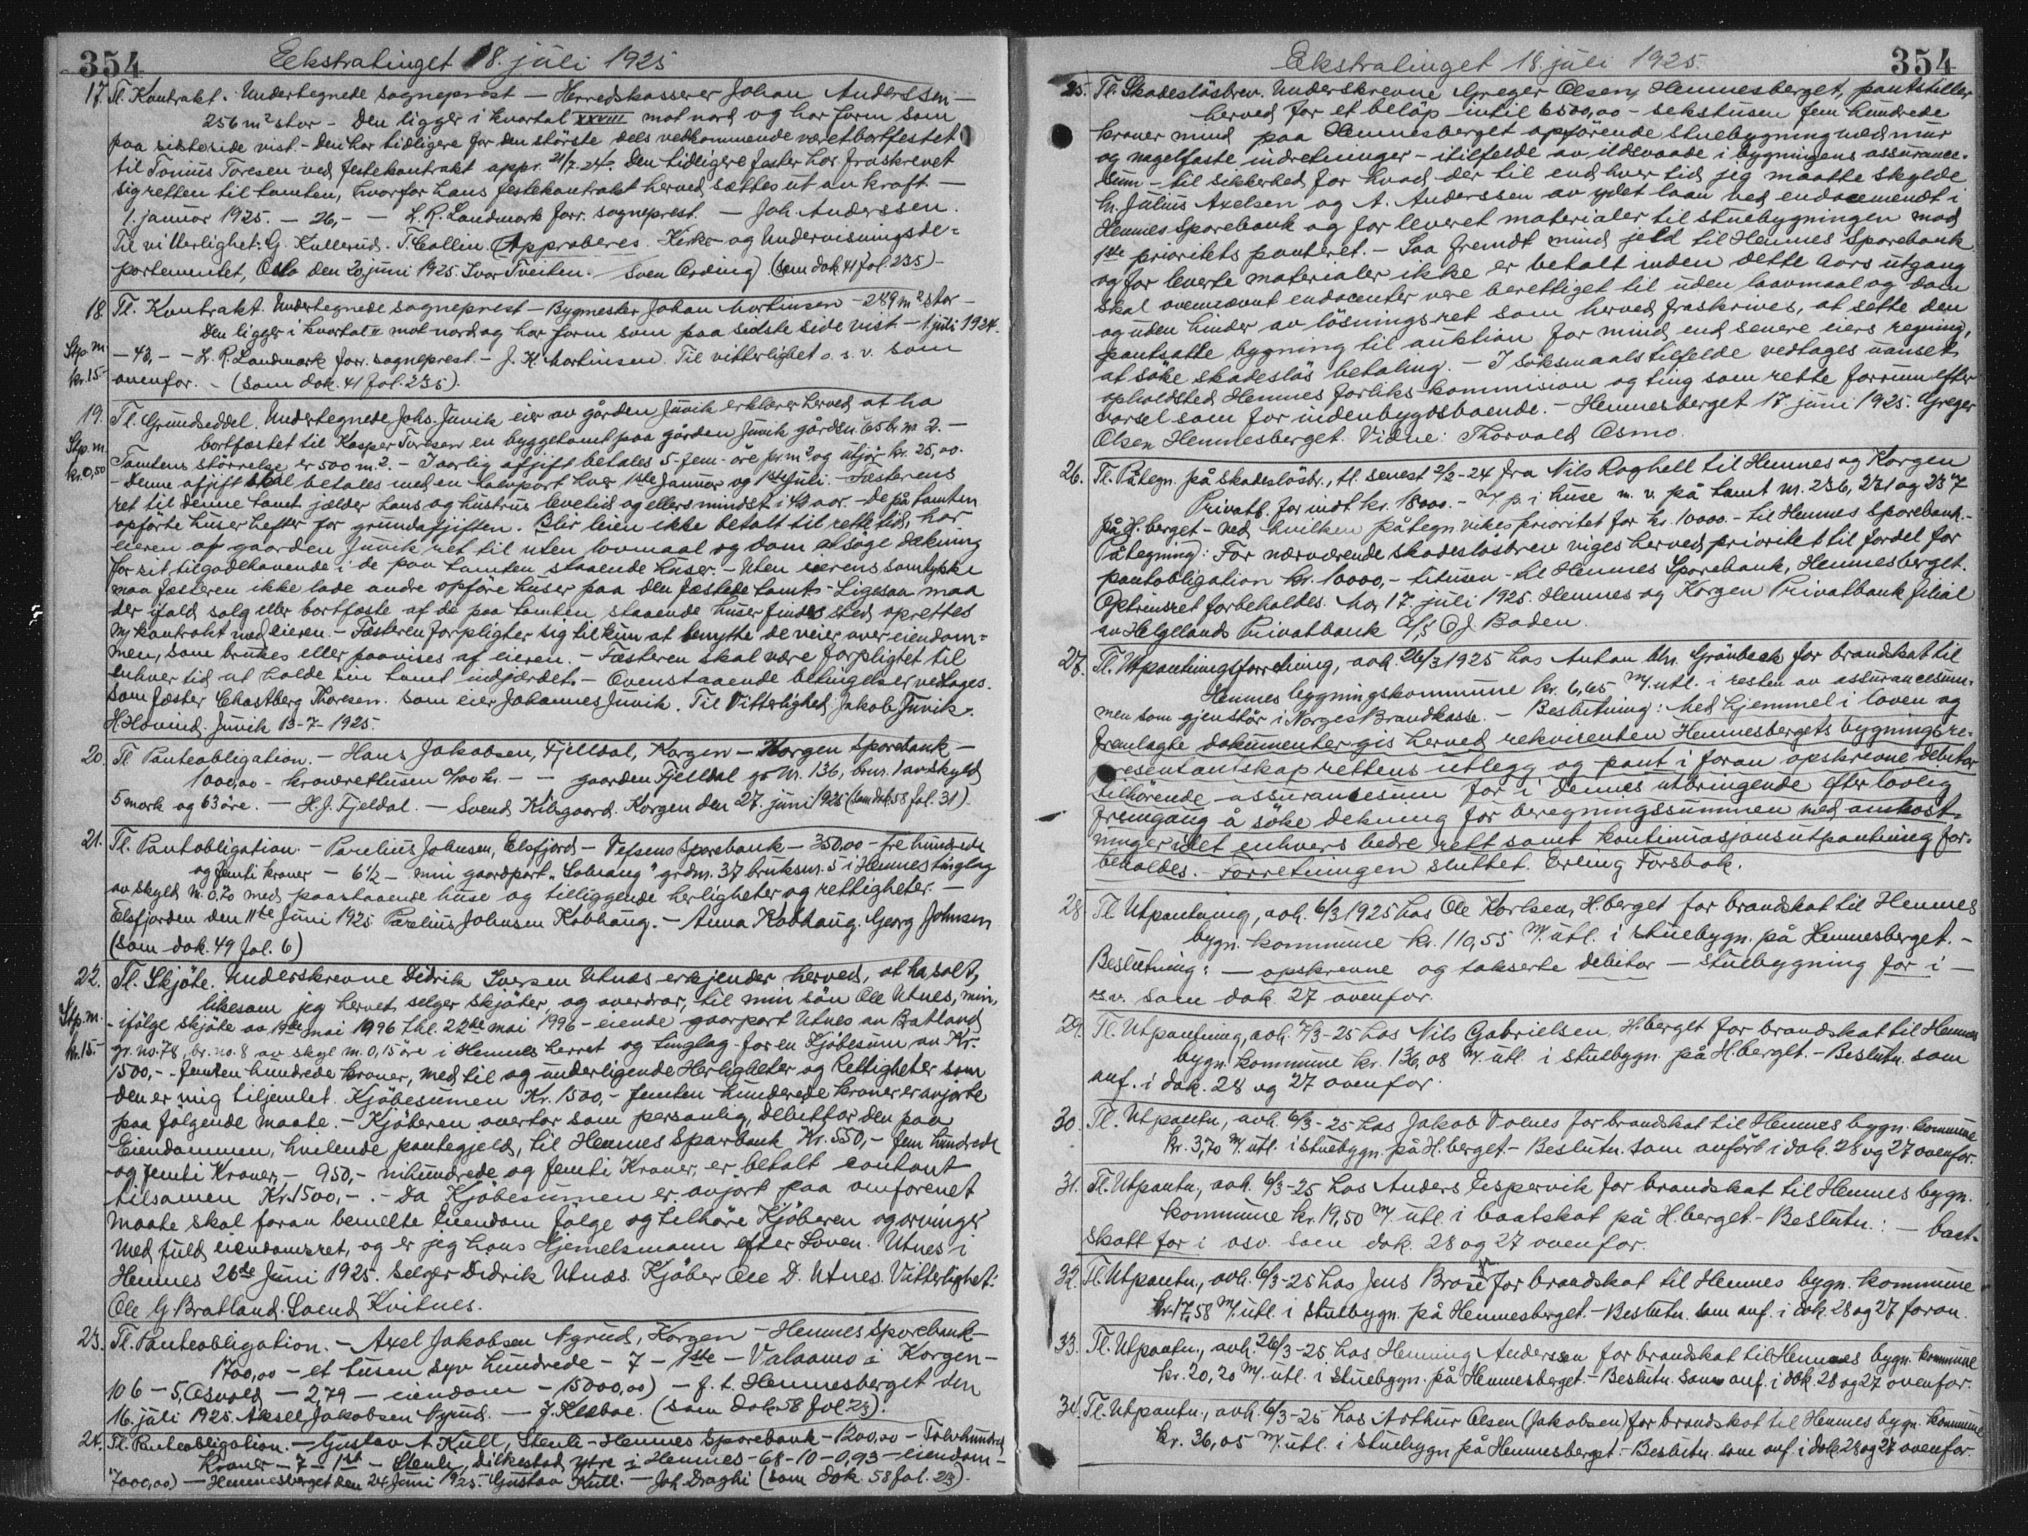 354
Ekstratinget 18. juli 1925
17. Tl. Kontrakt. Undertegnede sogneprest — Herredskasserer Johan Anderssen —
256 m² stor – Den ligger i kvartal XXVIII mot nord og har form som
paa sidste side vist. – Den har tidligere for den störste dels vedkommende været bortfestet
til Tonnis Toresen ved festekontrakt appr. 21/7.24. Den tidligere fester har fraskrevet
sig retten til tomten, hvorfor hans festekontrakt herved sættes ut av kraft —
1. januar 1925. — 26,— — L. R. Landmark forr. sogneprest. — Joh. Anderssen.
Til vitterlighet: G. Kullerud. T. Collin. (Approberes. Kirke- og Undervisningsde-
partementet, Oslo den 20 juni 1925. Ivar Tveiten. Sven Arding) (som dok 41 fol. 235) –
18. Tl. Kontrakt. Undertegnede sogneprest – Bygmester Johan Mortinsen – 289 m² stor –
Den ligger i kvartal mot nord og har form som paa sidste side vist – 1 juli 1924.
Stp. m.
kr. 15.-
— 43, – – L. R. Landmark forr. sogneprest. – J. K. Mortinsen. Til vitterlighet o. s. v. som
ovenfor. – (som dok. 41 fol. 235).
19. Tl. Grundseddel. Undertegnede Johs. Juvik eier av gården Juvik erklærer herved at ha
bortfæstet til Kasper Toresen en byggetomt paa gården Juvik gårdsn. 65 br. nr. 2. —
Stp. m.
kr. 0,50
Tomtens störrelse er 500 m². – I aarlig afgift betales 5 - fem - öre pr. m² og utgjör kr. 25,00.
– Denne afgift skal betales med en halvpart hver 1ste Januar og 1ste Juli. – Fæsterens
ret til denne tomt gjælder hans og hustrus levetid og ellers mindst i 40 aar. – De på tomten
opförte huser hefter for grundafgiften. Blir leien ikke betalt til rette tid, har
eieren af gaarden Juvik ret til uten lovmaal og dom at söge dækning
for sit tilgodehavende i de paa tomten staaende huser. – Uten eierens samtykke
maa fæsteren ikke lade andre opföre huser paa den fæstede tomt. – Ligesaa maa
der ifald salg eller bortfæste af de paa tomten staaende huser finder sted oprettes
ny kontrakt med eieren. – Fæsteren forpligter sig til kun at benytte de veier over eiendom=
men, som brukes eller paavises af eieren. – Fæsteren skal være forpligtet til
enhver tid at holde sin tomt indgjærdet. – Ovenstaaende betingelser vedtages.
Som fæster Chastberg Thoresen. som eier Johannes Juvik. Til Vitterlighet Jakob Juvik.
H. Hovind. Juvik 13-7-1925.
20. Tl Panteobligation. – Hans Jakobsen, Fjelldal, Korgen – Korgen Sparebank –
1000,00 – kroner ettusen 0/00 kr. – – gaarden Fjelldal gr. Nr. 136, brnr. 1 av skyld
5 mark og 63 öre. – H. J. Fjeldal. – Svend Kilsgaard. Korgen den 27. juni 1925 (som dok. 58 fol. 31).
21. Tl. Pantobligation – Parelius Johnsen, Elsfjord – Vefsens Sparebank – 350,00 – tre hundrede
og femti kroner – 6½ – min gaardpart „Solvang" grdsnr. 37 bruksnr. 5 i Hemnes tinglag
av skyld m. 0,20 med paastaaende huse og tilliggende herligheter og rettigheter. –
Elsfjorden den 11te Juni 1925 Parelius Johnsen Kobhaug. – Anna Kobhaug. Georg Johnsen
(som dok. 49 fol. 6)
22. Tl. Skjöte. Underskrevne Didrik Iversen Utnæs erkjender herved, at ha solt,
likesom jeg hervet selger skjöter og overdrar, til min sön Ole Utnes, min,
Stp. m.
kr. 15.-
– ifölge skjöte av 19de mai 1996 thl. 22de mai 1996 – eiende gaarpart Utnes av Bratland
gr. no. 78, br. no. 8 av skyl m. 0,15 öre i Hemnes herret og tinglag – for en Kjöbesum av Kr.
1500,- – femten hundrede kroner, med til og underligende Herligheter og Rettigheter som
den er mig tiljemlet. Kjöbesumen Kr. 1500,- femten hunderede kroner er avgjort
paa fölgende maate. – Kjöberen overtar som personlig debittor den paa
Eiendommen, hvilende, pantegjeld, til Hemnes Sparbank Kr. 550,- fem hundrede
og femti Kroner, – 950,- nihundrede og femti Kroner, er betalt contant
tilsamen Kr. 1500,- . – Da Kjöbesumen er avgort paa omforenet
maate skal foran bemelte Eiendom fölge og tilhöre Kjöberen og arvinger
med fuld eiendomsret, og er jeg hans Hjemelsmann efter Loven. Utnes i
Hemnes 26de Juni 1925. Selger Didrik Utnæs. Kjöber Ole D. Utnes. Vitterlighet:
Ole G Bratland. Svend Kvitnes.
23. Tl. Panteobligation. – Axel Jakobsen Nyrud, Korgen – Hemnes Sparebank –
1700,00 – et tusen syv hundrede – 7 – 1ste – Valaamo i Korgen –
106 – 5, Osvold – 2,79 – eiendom – 15000,00) – f. t. Hemnesberget den
16. juli 1925. Aksel Jakobsen Nyrud. — J. Klæboe. (som dok 58 fol. 23).
24. Tl. Panteobligation. – Gustav A Kull, Stenli – Hemnes Sparebank – 1200,00 – Tolvhundred
Kroner – 7 – 1st – Stenli, Dilkestad ytre i Hemnes – 68 – 10 – 0,93 – eiendom –
7000,00) – Hemnesberget den 24 Juni 1925. Gustav Kull. – Joh. Draghi (som dok 58 fol. 23).
354
Ekstratinget 18. juli 1925.
25. Tl. Skadeslösbrev. Underskrevne Greger Olsen, Hemnesberget, pantstiller
herved for et belöp intil 6500,00 – sekstusen fem hundrede
kroner mind paa Hemnesberget opförende stuebygning med mur
og nagelfaste indretninger – i tilfelde av ildsvaade i bygningens assurance-
sum – til sikkerhed for hvad der til enhver tid jeg maatte skylde
hr. Julius Axelsen og A. Anderssen av ydet laan ved endosemendt i
Hemnes Sporebank og for leveret materialer til stuebygningen mod
1ste prioritets panteret. – Saa fremdt mind jeld til Hemnes Sporebank
og for leverte materialer ikke er betalt inden dette aars utgang
skal ovennævnt endosenter være berettiget til uden laavmaal og dom
og uden hinder av lösningsret som herved fraskrives, at sette den
pantsatte bygning til auktion for mind, end senere eiers regning,
at söke skadeslös betaling. – I söksmaalstilfelde vedtages uanset
opholdsted Hemnes forliks-kommision og ting som rette forrum efter
varsel som for indenbygdsboende. – Hemnesberget 17 juni 1925. Greger
Olsen Hemnesberget. Vidne: Thorvald Osmo.
26. Tl. Påtegn. på skadeslösbr., tl. senest 2/2-24 fra Nils Roghell til Hemnes og Korgen
Privatb. for indt kr. 18000. – m/ p. i huse m. v. på tomt nr. 236, 231 og 237
på H. berget – ved hvilken påtegn. vikes prioritet for kr. 10000.– til Hemnes Sporebank. –
Påtegning: For nærværende skadeslösbrev viges herved prioritet til fordel for
pantobligation kr. 10000,- titusen – til Hemnes Sporebank, Hemnesberget.
Optrinsret forbeholdes. Mo, 17. juli 1925. Hemnes og Korgen Privatbank filial
av Helgelands Privatbank A/S O J. Boden.
27. Tl. Utpantningsforretning, avh. 26/3 1925 hos Anton Chr. Grönbeck for brandskat til
Hemnes bygningskommune kr. 6,65 m/. utl. i resten av assurancesum-
men som gjenstår i Norges Brandkasse. – Beslutning: Med hjemmel i loven og
fremlagte dokumenter gis herved rekvirenten Hemnesbergets bygningsre-
presentantskap rettens utlegg og pant i foran opskrevne debitor
tilhörende assurancesum for i dennes utbringende efter lovlig
fremgang å söke dekning for beregningssummen med omkost-
ninger idet enhvers bedre rett samt kontinuasjonsutpantning for-
beholdes. – Forretningen sluttet. Erling Forsbak.
28. Tl Utpantning, avh. 6/3 1925 hos Ole Karlsen, H. berget for brandskat til Hemnes
bygn. kommune kr. 110,55 m/. utl. i stuebygn. på Hemnesberget. –
Beslutning: — opskrevne og takserte debitor – stuebygning for i —
o.s.v. som dok. 27 ovenfor.
29. Tl. Utpantning, avh. 7/3-25 hos Nils Gabrielsen. H. berget for brandskat til Hemnes
bygn. kommune kr. 136,08 m/. utl. i stuebygn. på H. berget. – Beslutn. som
anf. i dok. 28 og 27 ovenfor.
30. Tl. Utpantn., avh. 6/3-25 hos Jakob Volnes for brandskat til Hemnes bygn. kommune
kr. 3,70 m/. utl. i stuebygn. på H. berget. – Beslutn. som anfört i dok. 28 og 27 ovenfor.
31. Tl. Utpantn., avh. 6/3-25 hos Anders Lespervik for brandskat til Hemnes bygn.
kommune kr. 19,50 m/. utl. i baatskot på H. berget – Beslutn.: – baat-
skott for i osv. som dok. 28 og 27 ovenfor.
32. Tl. Utpantn., avh. 6/3-25 hos Jens Brose for brandskat til Hemnes bygn. kommune
kr. 17,58 m/. utl. i stuebygn. på Hemnesberget. – Beslutn. som anf. i dok. 28 og 27 foran.
33. Tl. Utpantn., avh. 26/3-25 hos Henning Anderssen for brandskat til Hemnes bygn. kommune
kr. 20,20 m/. utl. i stuebygn. på Hemnesberget. – Beslutn. som anf. i dok. 28 og 27 ovenfor.
34. Tl. Utpantn., avh. 6/3-25 hos Arthur Olsen (Jakobsen) for brandskat til Hemnes bygn. kommune
kr. 36,05 m/. utl. i stuebygn. på Hemnesberget. – Beslutn. som anf. i dok. 28 og 27 ovenfor.